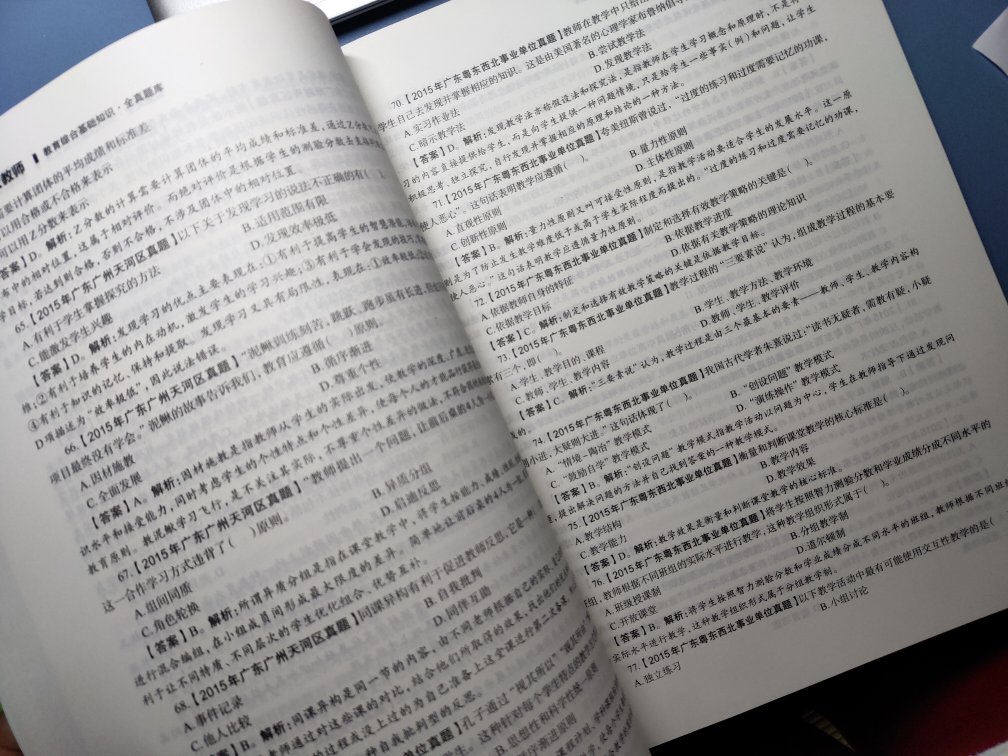 教师 教育综合基础知识·全真题库
要计算团体的平均成绩和标准差
以用合格或不合格来表示
可以用乙分数来表示
答案】D。解析:乙分数的计算需要计算团体的平均成绩和标准差,通过乙分
考中的相对位置,这属于相对评价。而绝对评价是根据学生的测验分数
学目标,若达到则合格,否则不合格,不涉及团体中的相对位置。
65.【2015年广东广州天河区真题】以下关于发现学习的说法不正确的有( )。
A.有利于学生掌握探究的方法
B.适用范围有限
C.能激发学生兴趣
D.发现效率极低
【答案】D。解析:发现学习的优点主要表现在:①有利于提高学生的智慧潜能,
维;②有利于培养学生的内在动机,激发学生的学习兴趣;③有利于学会发现的技巧;
④有利于知识的记忆、保持和提取。发现学习又具有局限性,表现在:①效率
D项描述为“效率极低”,因此说法错误。
66.【2015年广东广州天河区真题】“泥鳅训练刻苦,跳跃、跑步虽有长进,但
项目最终没有学会。”泥鳅的故事告诉我们,教育应遵循( )原则。
A.因材施教
B.循序渐进
C.全面发展
D.尊重个性
【答案】A。解析:因材施教是指教师从学生的实际出发,使教学的深度、广度
识水平和接受能力,同时考虑学生的个性特点和个性差异,使每个人的才能品行获得
教育原则。教泥鳅学习飞行,是不关注其实际,不尊重个性差异的做法,不符合
67.【2015年广东广州天河区真题】“教师提出一个问题,让前后桌的4人为一
这一合作学习方式违背了( )原则。
A.组间同质
B.异质分组
C.角色轮换
D.启迪反思
【答案】B。解析:所谓异质分组是指在课堂教学中,将学生按能力、成绩、
进行混合编组,在小组成员间形成最大限度的差异。简单地让前后桌的4人为一
利于让不同特质、不同层次的学生优化组合、优势互补。
68.【2015年广东广州天河区真题】同课异构有利于促进教师反思,它是一种
A.事件记录
B.自我批判
C.他人比较
D.同伴互助
【答案】B。解析:同课异构是同一节的内容,由不同老师根据自己的实际、
老师通过对这些课的对比,结合他们所取得的效果,找出他们的
过程或没上过的为自己准备上这堂课进行第二次备课
种自我批判型的反思。
单位真题】孔子通过“视其所以”“观其所
学生。这种针对每个学生特点的教育
B.思想性和科学性统一原则
序渐进原则
70.【2015年广东粤东西北事业单位真题】教师在教学中只给出
学生自己去发现并掌握相应的知识。这是由美国著名的心理学家布鲁纳倡导
A.实习作业法
B.尝试教学法
C.暗示教学法
D.发现教学法
【答案】D。解析:发现教学法亦称假设法和探究法,是指教师在学生学习概念和原理时,不是将
习的内容直接提供给学生,而是向学生提供一种问题情境,只是给学生一些事实(例)和问题,让学生
积极思考、独立探究,自行发现并掌握相应的原理和结论的一种方法。
71.【2015年广东粤东西北事业单位真题】夸美纽斯曾说过,“过度的练习和过度需要记忆的功课,
使人恶心”。这句话表明教学应遵循( )。
A.直观性原则
B.量力性原则
C.创新性原则
D.主体性原则
【答案】B。解析:量力性原则又叫可接受性原则,是指教学活动要适合学生的发展水平。这一原
则是为了防止发生教学难度低于或高于学生实际程度而提出的。“过度的练习和过度需要记忆的功课,
使人恶心。”这句话表明教学应遵循量力性原则。
72.【2015年广东粤东西北事业单位真题】制定和选择有效教学策略的关键是( )。
A.依据教师自身的特征
B.依据教学进度
C.依据教学目标
D.依据有关教学策略的理论知识
【答案】C。解析:制定和选择有效教学策略的关键是依据教学目标。
73.【2015年广东粤东西北事业单位真题】教学过程的“三要素说”认为,组成教学过程的基本要
有三个,即( )。
A.学生、教学目的、课程
B.学生、教学方法、教学环境
C.教师、学生、教学内容
D.教师、学生、教学评价
【答案】C。解析:“三要素说”认为,教学过程是由三个最基本的要素——教师、学生、教学内容构
成的。
74.【2015年广东粤东西北事业单位真题】我国古代学者朱熹说过:“读书无疑者,需教有疑,小疑
则小进,大疑则大进。”这句话体现了( )。
A.“情境一陶冶”教学模式
B.“创设问题”教学模式
C.“鼓励自学”教学模式
D.“演练操作”教学模式
【答案】B。解析:“创设问题”教学模式指教学活动以问题为中心,学生在教师指导下通过发现问
题,提出解决问题的方法并自己找到答案的一种教学模式。
75.【2015年广东粤东西北事业单位真题】衡量和判断课堂教学的核心标准是( )。
A.教学结构
B.教学内容
C.教学能力
D.教学效果
【答案】D。解析:教学效果是衡量和判断课堂教学的核心标准。
76.【2015年广东粤东西北事业单位真题】将学生按照智力测验分数和学业成绩分成不同水平的
班组,教师根据不同班组的实际水平进行教学,这种教学组织形式属于( )。
A.班级授课制
B.分组教学制
C.开放课堂
D.道尔顿制
【答案】B。解析:将学生按照智力测验分数和学业成绩分成不同水平的班组,教师根据不同班
实际水平进行教学,这种教学组织形式属于分组教学制。
77.【2015年广东粤东西北事业单位真题】以下教学活动中最有可能使用交互性教学的是(
A.独立练习
B.小组讨论